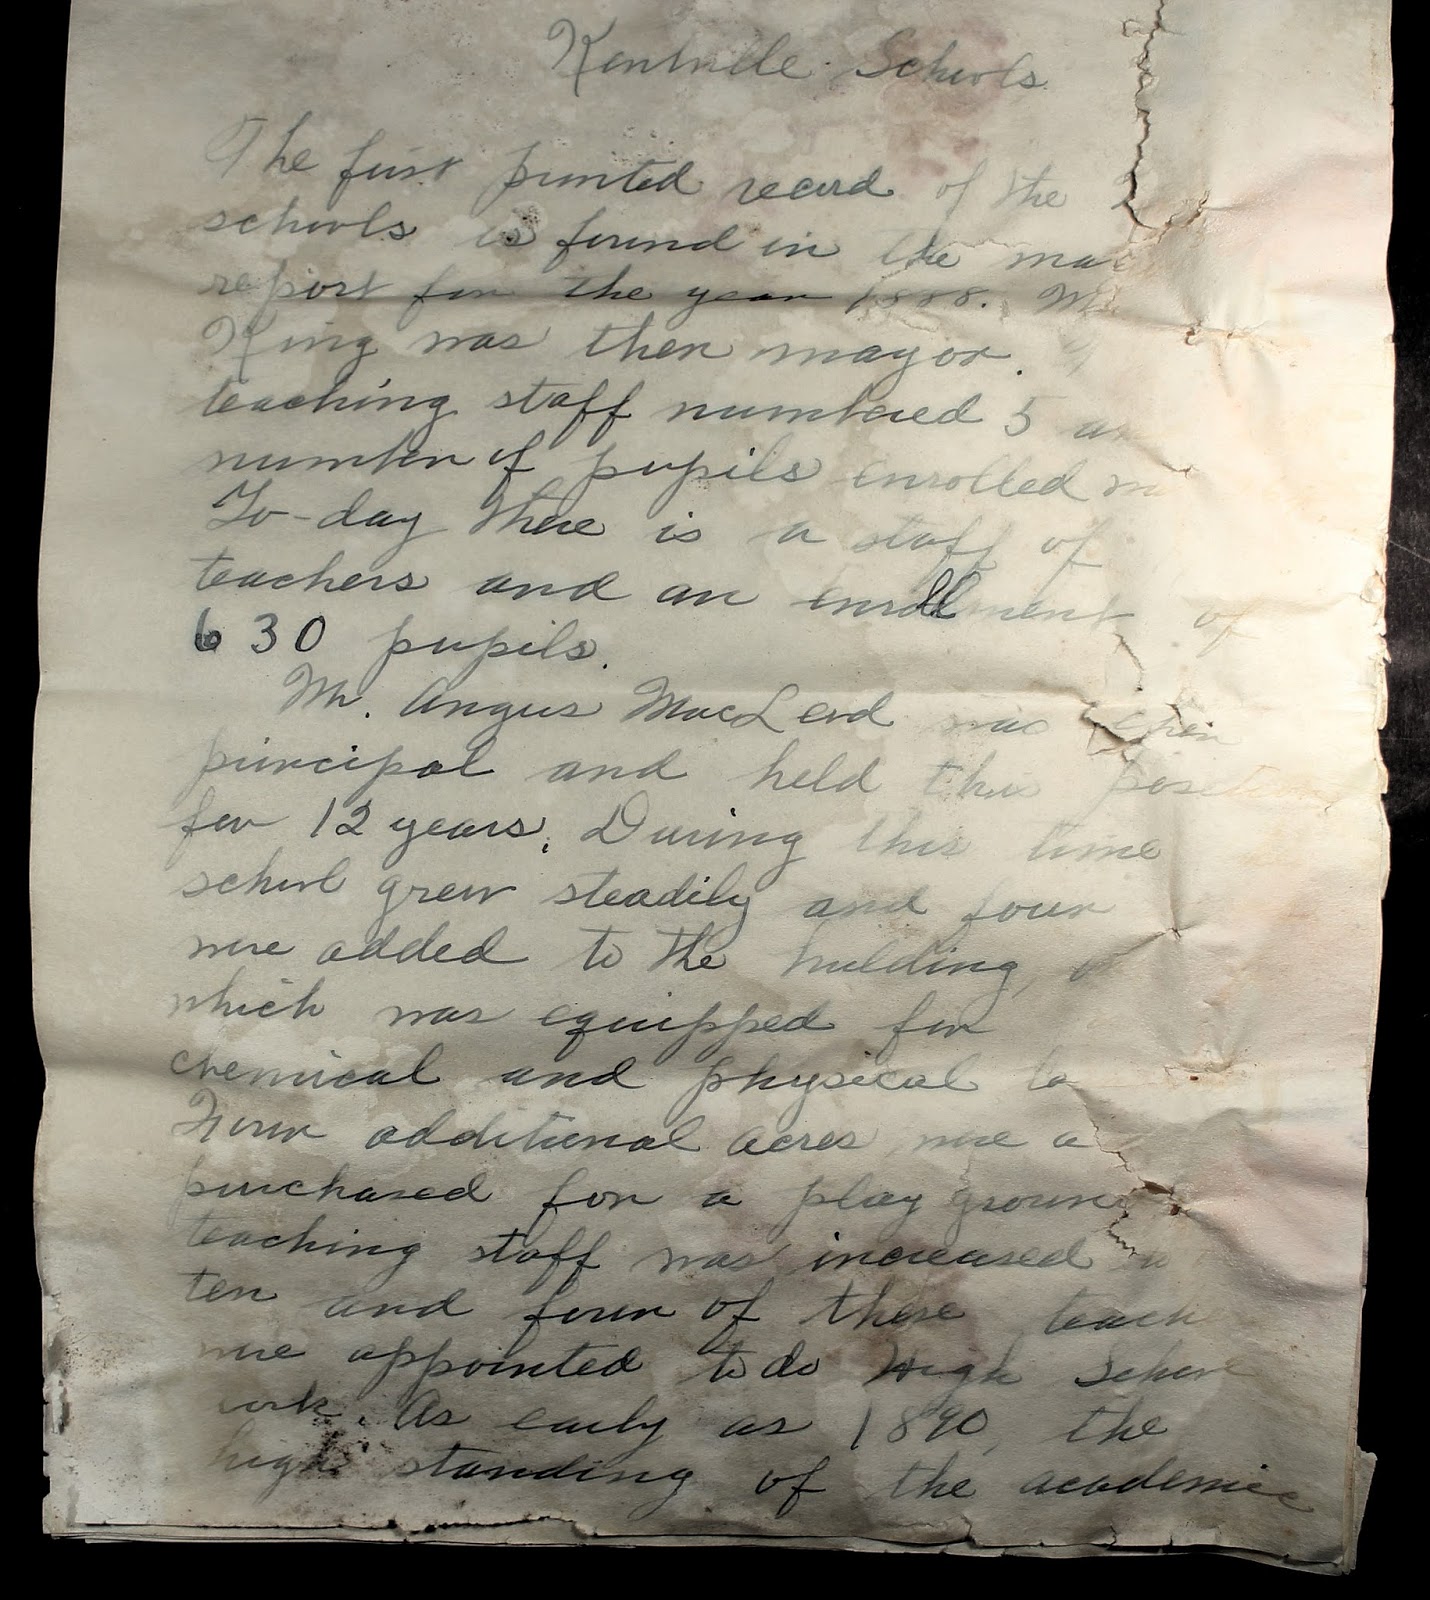 Kentville Schools
The first printed record of the
schools is found in the
report for the year 1888.
King was then mayor.
teaching staff numbered 5
number of pupils enrolled
To-day there is a staff of
teachers and an enrollment of
630 pupils.
Mr. Angus MacLeod was then
principal and held this position
for 12 years. During this time
school grew steadily and four
were added to the building,
which was equipped for
chemical and physical
Four additional acres were
purchased for a play ground
teaching staff was increased
ten and four of these
were appointed to do High School
work. As early as 1890, the
high standing of the academic